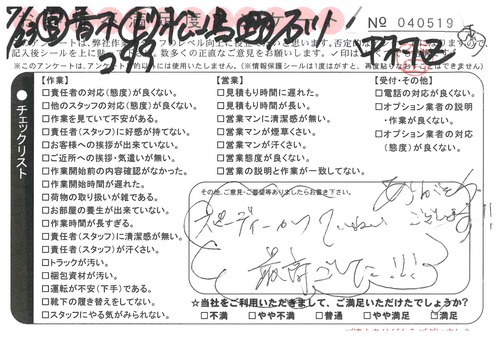 No 040519
記入後シールを上に貼
※このアンケートは、アンケート目的以外には使用しません。(※情報保護シールは1度はがすと、再度貼りなおすことはできません)
チェックリスト
【作業】
□責任者の対応(態度)が良くない。
□他のスタッフの対応(態度)が良くない。
□作業を見ていて不安がある。
□責任者(スタッフ)に好感が持てない。
□お客様への挨拶が出来ていない。
□ご近所への挨拶・気遣いが無い。
□作業開始前の内容確認がなかった。
□作業開始時間が遅れた。
□荷物の取り扱いが雑である。
□お部屋の養生が出来ていない。
□作業時間が長すぎる。
□責任者(スタッフ)に清潔感が無い。
□責任者(スタッフ)が汗くさい。
□トラックが汚い。
□梱包資材が汚い。
□運転が不安(下手)である。
□靴下の履き替えをしてない。
□スタッフにやる気がみられない。
【営業】
□見積もり時間に遅れた。
□見積もり時間が長い。
□営業マンに清潔感が無い。
□営業マンが煙草くさい。
□営業マンが汗くさい。
□営業態度が良くない。
□営業の説明と作業が一致してない。
【受付・その他】
□電話の対応が良くない。
□オプション業者の説明
・作業が良くない。
□オプション業者の対応
(態度)が良くない。
その他、ご意見・ご要望等ありましたらお書き下さい。
スピーディーかつていねい
ありがとう
ございます
最高でした!!!
☆当社をご利用いただきまして、ご満足いただけたでしょうか?
□不満 □やや不満 □普通 □やや満足 ☑満足